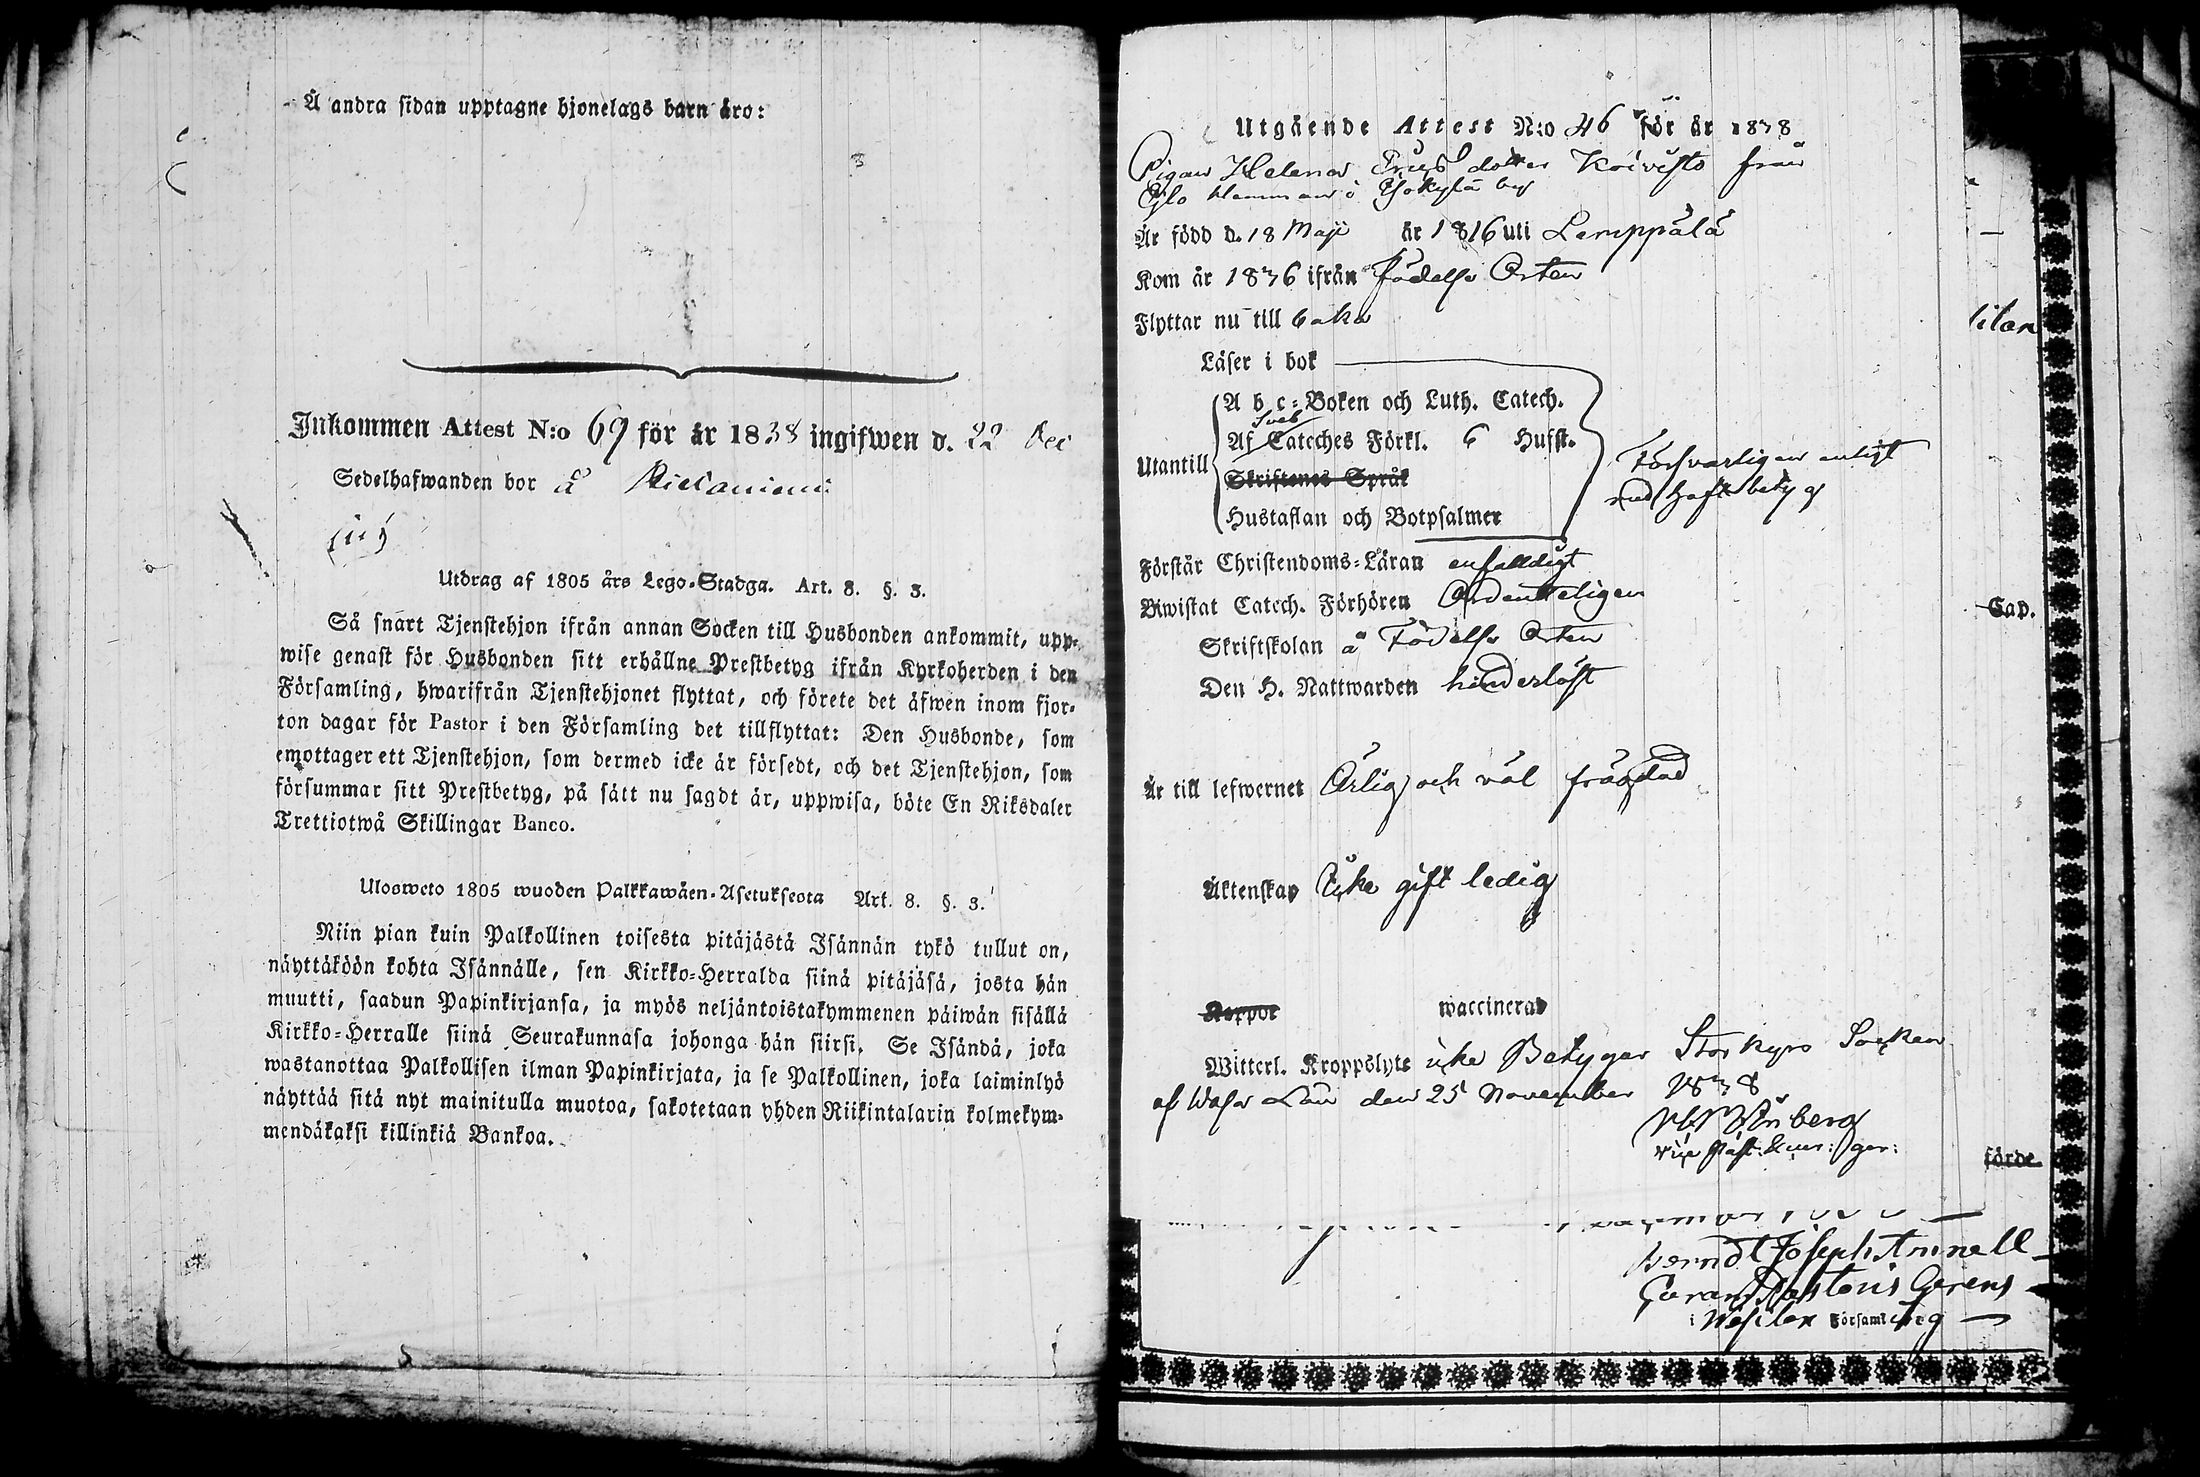 Å andra sidan upptagne hjonelags barn äro:
Inkommen Attest N:o 69 för år 1838 ingifwen d. 22 Dec
Sedelhafwanden bor å
Utdrag af 1805 års Lego-Stadga. Art. 8. §. 3.
Så snart Tjenstehjon ifrån annan Socken till Husbonden ankommit, upp-
wise genast för Husbonden sitt erhållne Prestbetyg ifrån Kyrkoherden i den
Församling, hwarifrån Tjenstehjonet flyttat, och förete det äfwen inom fjor-
ton dagar för Pastor i den Församling det tillflyttat: Den Husbonde, som
emottager ett Tjenstehjon, som dermed icke är försedt, och det Tjenstehjon, som
försummar sitt Prestbetyg, på sätt nu sagdt är, uppwisa, böte En Riksdaler
Trettiotwå Skillingar Banco.
Ulosweto 1805 wuoden Palkkawäen-Asetuksesta Art. 8. §. 3.
Niin pian kuin Palkollinen toisesta pitäjästä Isännän tykö tullut on,
näyttäköön kohta Isännälle, sen Kirkko-Herralda siinä pitäjäsä, josta hän
muutti, saadun Papinkirjansa, ja myös neljäntoistakymmenen päiwän sisällä
Kirkko-Herralle siinä Seurakunnasa johonga hän siirsi. Se Isändä, joka
wastanottaa Palkollisen ilman Papinkirjata, ja se Palkollinen, joka laiminlyö
näyttää sitä nyt mainitulla muotoa, sakotetaan yhden Riikintalarin kolmekym-
mendäkaksi killinkiä Bankoa.
Utgående Attest N:o 46 för år 1838
Pigan Helena Ericsdotter Koivisto från
hemman i by
Är född d. 18 Maji år 1816 uti Lemppälä
Kom år 1836 ifrån Födelse Orten
Flyttar nu till baka
Läser i bok
A b c-Boken och Luth. Catech.
Sveb
Af Cateches Förkl. 6 Hufst.
Utantill
Skriftenes Språk
Hustaflan och Botpsalmer
Försvarligen enligt
med haft betyg
Förstår Christendoms-Läran enfaldigt
Biwistat Catech. Förhören Ordenteligen
Skriftskolan å Födelse Orten
Den H. Nattwarden hinderlöst
Är till lefwernet Ärlig och väl frägdad
Äktenskap Icke gift ledig
Koppor waccinerad
Witterl. Kroppslyte icke Betygar Storkyro Socken
af Wasa Län den 25 November 1838
vice Past: ger:
litan
Cap.
förde
Berndt Joseph Annell
Pastoris Gerens
i Församling